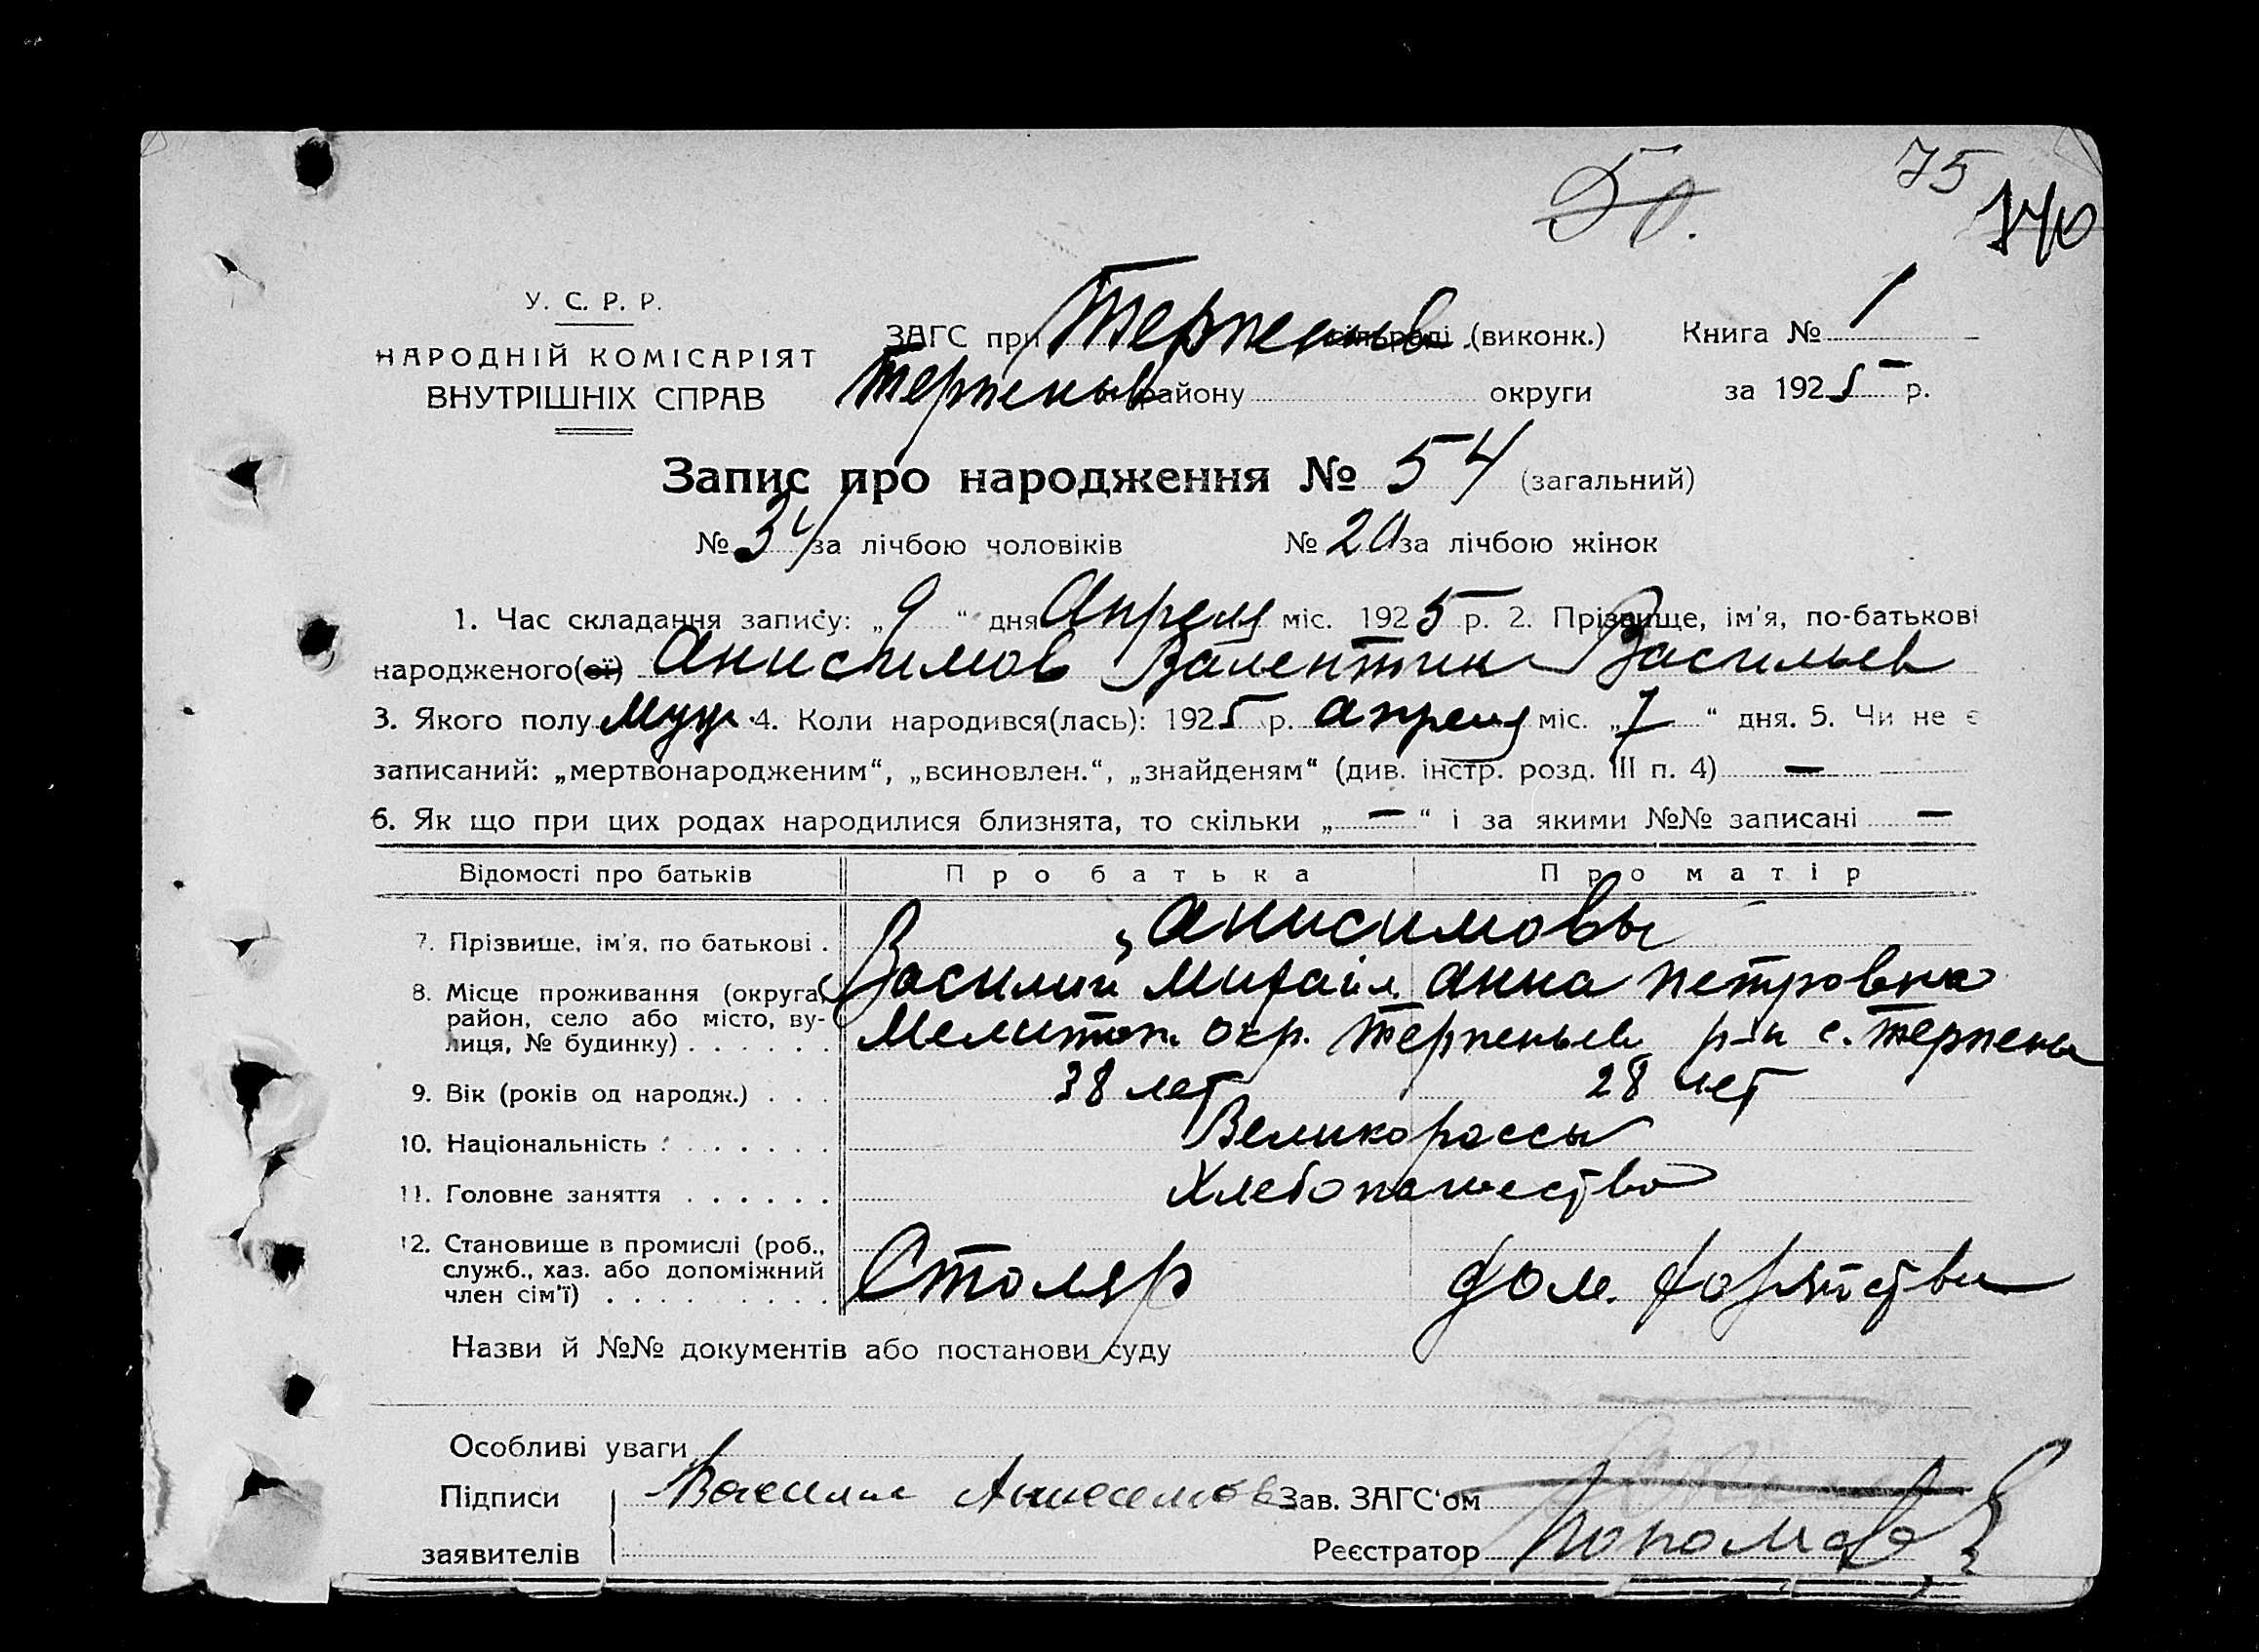 50.
75
У. С. Р. Р.
НАРОДНІЙ КОМІСАРІЯТ
ВНУТРІШНІХ СПРАВ
ЗАГС при Терпеньев сільраді (виконк.) Книга № 1
Терпеньев району округи за 1925 р.
Запис про народження № 54 (загальний)
№ 34 за лічбою чоловіків № 20 за лічбою жінок
1. Час складання запису: „9“ дня Апреля міс. 1925 р. 2. Прізвище, ім'я, по-батькові
народженого(ої) Анисимов Валентин Васильев
3. Якого полу Муж. 4. Коли народився(лась): 1925 р. апреля міс. „7“ дня. 5. Чи не є
записаний: „мертвонародженим“, „всиновлен.“, „знайденям“ (див. інстр. розд. III п. 4) —
6. Як що при цих родах народилися близнята, то скільки „—“ і за якими №№ записані —
Відомості про батьків Про батька Про матір
7. Прізвище, ім'я, по батькові . Анисимовы
Василий Михайл. Анна Петровна
8. Місце проживання (округа, район, село або місто, вулиця, № будинку) . . . . . . Мелитоп. окр. Терпеньев р-н с. Терпенье
9. Вік (років од народж.) . . . 38 лет 28 лет
10. Національність . . . . . . . Великороссы
11. Головне заняття . . . . . . Хлебопашество
12. Становище в промислі (роб., служб., хаз. або допоміжний член сім'ї) . . . . . . . . . Столяр дом. хозяйство
Назви й №№ документів або постанови суду
Особливі уваги
Підписи Василий Анисимов Зав. ЗАГС'ом
заявителів Реєстратор